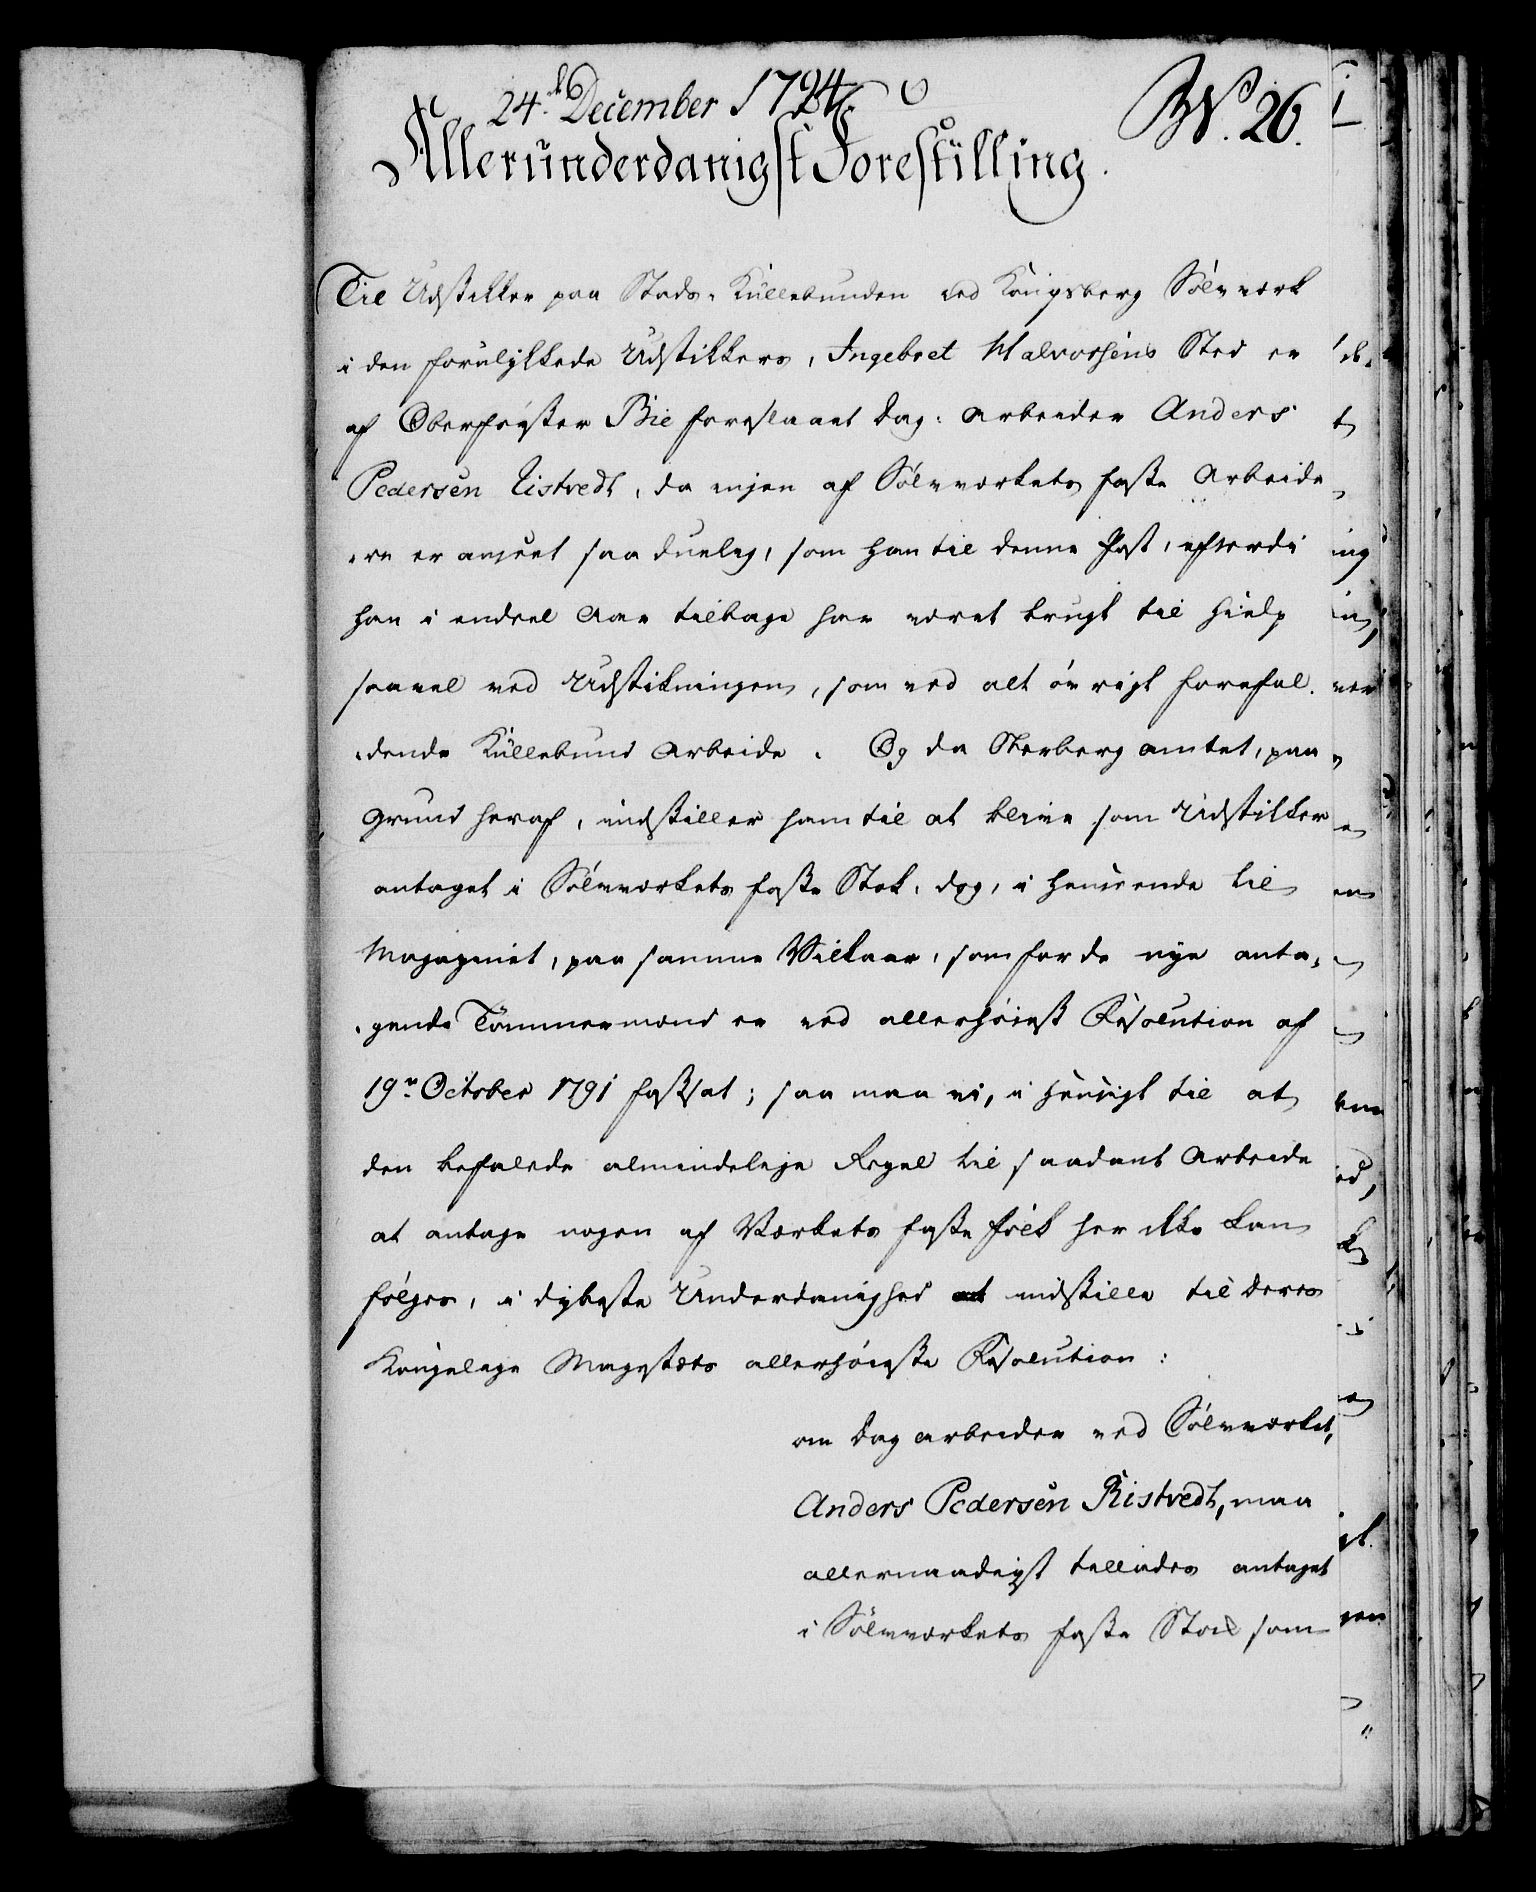 24de December 1794
No. 26.
Allerunderdanigst Forestilling.
Til Udstikker paa Stads-Kullebunden ved Kongsberg Sølvværk
i den forulykkede Udstikkers, Ingebret Halvorsens Sted er
af Oberførster Bie foreslaaet Dag-arbeider Anders
Pedersen Ristvedt, da ingen af Sølvværkets faste Arbeide-
-re er anseet saa duelig, som han til denne Post, efterdi
han i endeel Aar tilbage har været brugt til Hielp
saavel ved Udstikningen, som ved alt øvrigt forefal-
-dende Kullebund Arbeide. Og da Oberberg amtet, paa
Grund heraf, indstiller ham til at blive som Udstikker
antaget i Sølvværkets faste Stok, dog, i Henseende til
Magazinet, paa samme Vilkaar, som for de nye anta-
-gende Tømmermænd er ved allerhøieste Resolution af
19n October 1791 fastsat; saa maa vi, i Hensigt til at
den befalede almindelige Regel til saadant Arbeide
at antage nogen af Værkets faste Folk her ikke kan
følges, i dybeste Underdanighed indstille til Deres
Kongelige Majestæts allerhøieste Resolution:
om Dag arbeider ved Sølvværket,
Anders Pedersen Ristvedt, maa
allernaadigst tillades antaget
i Sølvværkets faste Stok som